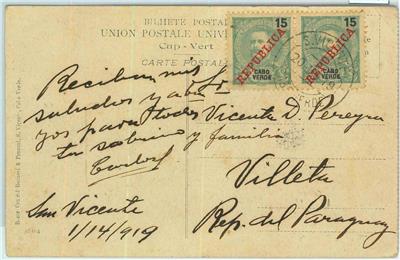 BILHETE POSTAL
UNION POSTALE UNIV
Cap-Vert
CARTE POSTALE
15
15
REPUBLICA
REPUBLICA
CABO
VERDE
CABO
VERDE
Reciban mis
saludos y
para todos
sobrino
Carlos
San Vicente
1/14/919
Sr
Vicente D. Pereyra
y familia
Villeta
Rep. del Paraguay